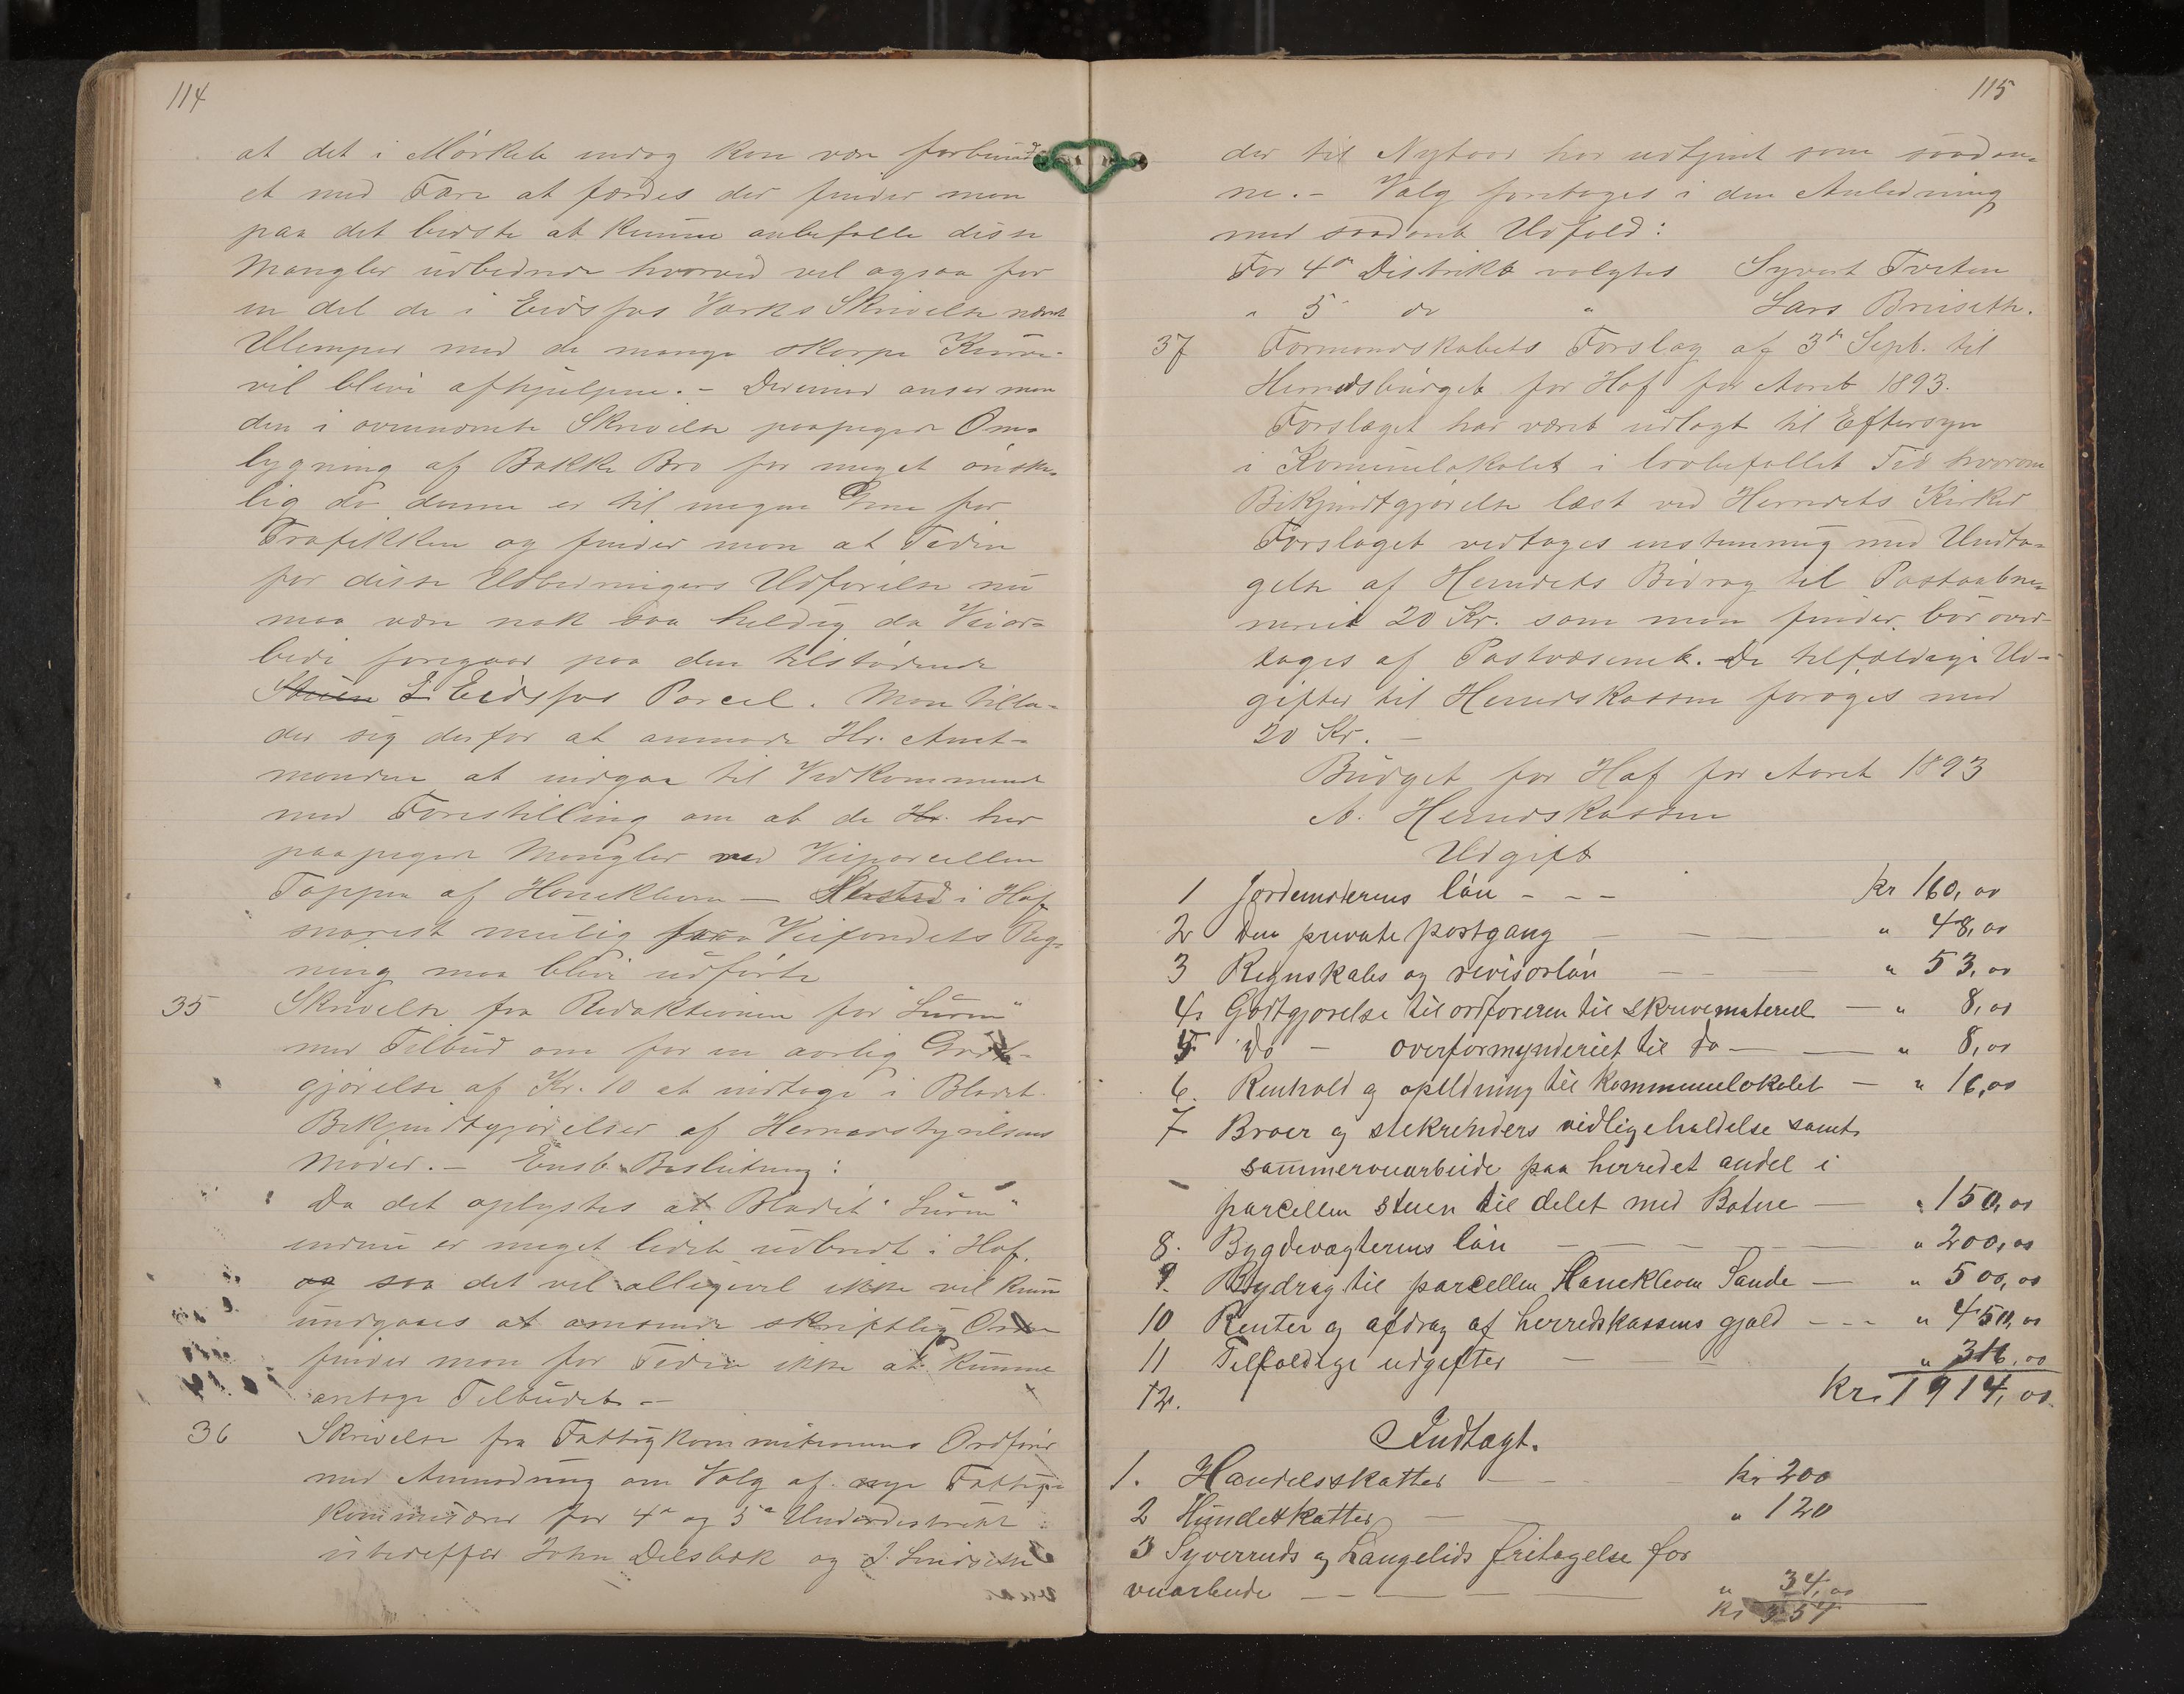 114
at det i Mörkete endog kan være forbund
et med Fare at færdes der finder man
paa det bedste at kunne anbefalle disse
Mangler udbedrede hvorved vel ogsaa for
en del de i Eidsfos Værks Skrivelse nævnte
Ulemper med de mange skarpe Kurve
vil blive afhjulpne. – Derimod anser man
den i ovennævnte Skrivelse paapegede Om-
bygning af Bakke Bro for meget önske-
lig da denne er til megen Gene for
Trafikken og finder man at Tiden
for disse Udbedringers Udförelse nu
maa være nok saa heldig da Veiar-
beide foregaar paa den tilstödende
Eidsfos Parcel. Man tilla-
der sig derfor at anmode Hr. Amt-
manden at indgaa til Vedkommende
med Forestilling om at de Hr. her
paapegede Mangler ved Veiparcellen
Toppen af Hanekleven — i Hof
snarest mulig for Veifondets Reg-
ning maa blive udförte
35 Skrivelse fra Redaktionen for "Luren"
med Tilbud om for en aarlig Godt-
gjörelse af Kr. 10 at indtage i Bladet
Bekjendtgjörelser af Herredsstyrelsens
Möder. – Enst. Beslutning:
Da det oplystes at Bladet "Luren"
endnu er meget lidet udbredt i Hof,
og saa det vel alligevel ikke vil kunne
undgaaes at anvende skriftlig Orden
finder man for Tiden ikke at kunne
antage Tilbudet. –
36 Skrivelse fra Fattigkommissionens Ordförer
med Anmodning om Valg af nye Fattig-
kommisærer for 4de og 5te Underdistrikt
istedetfor John Delsbæk og
115
der til Nytaar har udtjent som saadan-
ne. – Valg foretages i den Anledning
med saadant Udfald:
For 4de Distrikt valgtes Syvert Tveten
" 5 do " Lars Bruseth.
37 Formandskabets Forslag af 3de Sept. til
Herredsbudget for Hof for Aaret 1893.
Forslaget har været udlagt til Eftersyn
i Kommunelokalet i lovbefallet Tid hvorom
Bekjendtgjörelse læst ved Herredets Kirker
Forslaget vedtages enstemmig med Undta-
gelse af Herredets Bidrag til Postaabne-
riet 20 Kr. som man finder bör over-
tages af Postvæsenet. De tilfældige Ud-
gifter til Herredskassen foröges med
20 Kr. –
Budget for Hof for Aaret 1893
A. Herredskassen
Udgift
1 Jordemoderens lön - - - kr 160,00
2 Den private postgang — — " 48,00
3 Regnskabs og revisorlön — — " 53,00
4 Godtgjörelse til ordföreren til skrivemateriel — " 8,00
5 Do – overformynderiet til do — — " 8,00
6. Renhold og opildning til kommunelokalet — " 16,00
7 Broer og stekrenders vedligeholdelse samt
sommerveiarbeide paa herredet andel i
parcellen Stuen til delet med Botne — " 150,00
8. Bygdevægterens lön — — — " 200,00
9. Bydrag til parcellen Hanekleven Sande — " 500,00
10 Renter og afdrag af herredskassens gjæld - - - " 450,00
11 Tilfældige udgifter — — " 316,00
12. Kr. 1914,00
Indtægt.
1. Handelsskatter — — kr 200
2 Hundeskatter — " 120
3 Syverruds og Langelids fritagelse for
veiarbeide — — — " 34,00
Kr 354